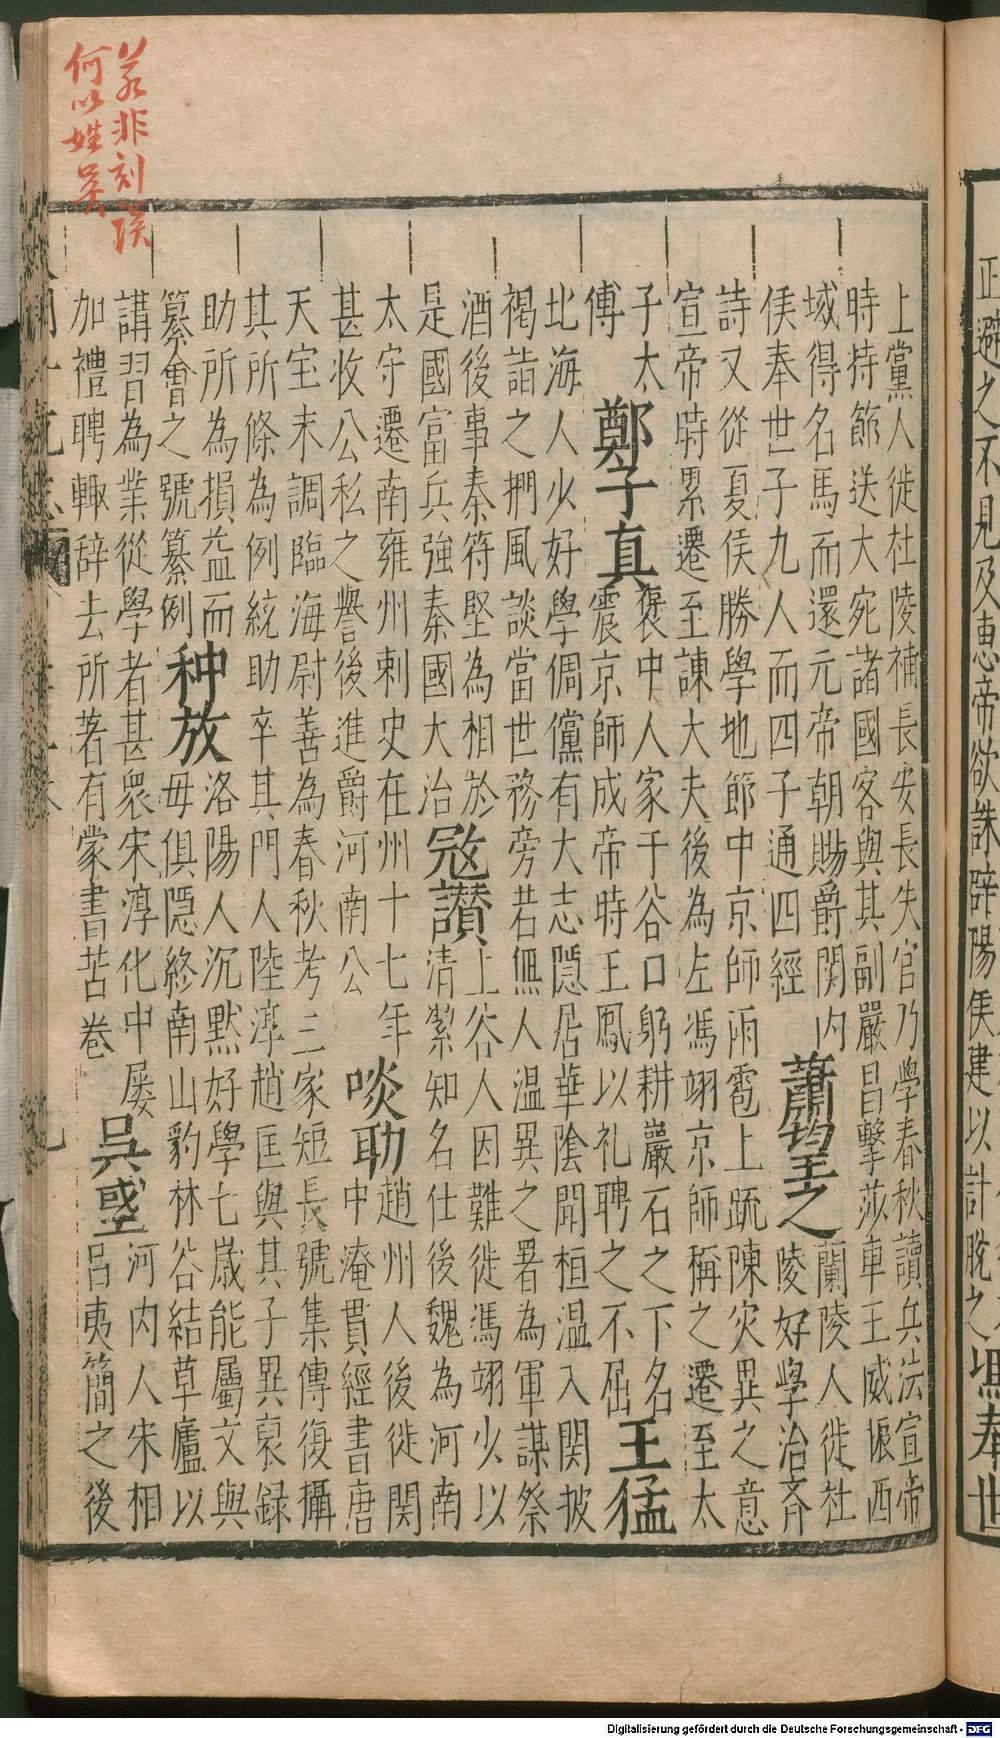 正避之不見及惠帝欲誅辟陽侯建以計脫之馮奉世
若非刻誤
何以姓吴
上黨人徙杜陵補長安長失官乃學春秋讀兵法宣帝
時持節送大宛諸國客與其副嚴昌擊莎車王威振西
域得名馬而還元帝朝賜爵関内
侯奉世子九人而四子通四經
蕭望之
蘭陵人徙杜
陵好學治齊
詩又從夏侯勝學地節中京師雨雹上疏陳灾異之意
宣帝時累遷至諫大夫後為左馮翊京師稱之遷至太
子太
傅
鄭子真
褒中人家于谷口躬耕巖石之下名
震京師成帝時王鳳以礼聘之不屈
王猛
北海人少好學倜儻有大志隱居華陰聞桓温入関披
褐詣之捫風談當世務旁若無人温異之署為軍謀祭
酒後事秦符堅為相於
是國富兵強秦國大治
寇讚
上谷人因難徙馮翊少以
清絜知名仕後魏為河南
太守遷南雍州刺史在州十七年
甚收公私之譽後進爵河南公
啖助
趙州人後徙関
中淹貫經書唐
天宝末調臨海尉善為春秋考三家短長號集傳復攝
其所條為例統助卒其門人陸淳趙匡與其子異裒録
助所為損益而
纂會之號纂例
种放
洛陽人沉默好學七歲能屬文與
毋俱隱終南山豹林谷結草廬以
講習為業從學者甚衆宋淳化中屡
加禮聘輒辞去所著有蒙書苦卷
吳
河内人宋相
呂夷簡之後
Digitalisierung gefördert durch die Deutsche Forschungsgemeinschaft - DFG